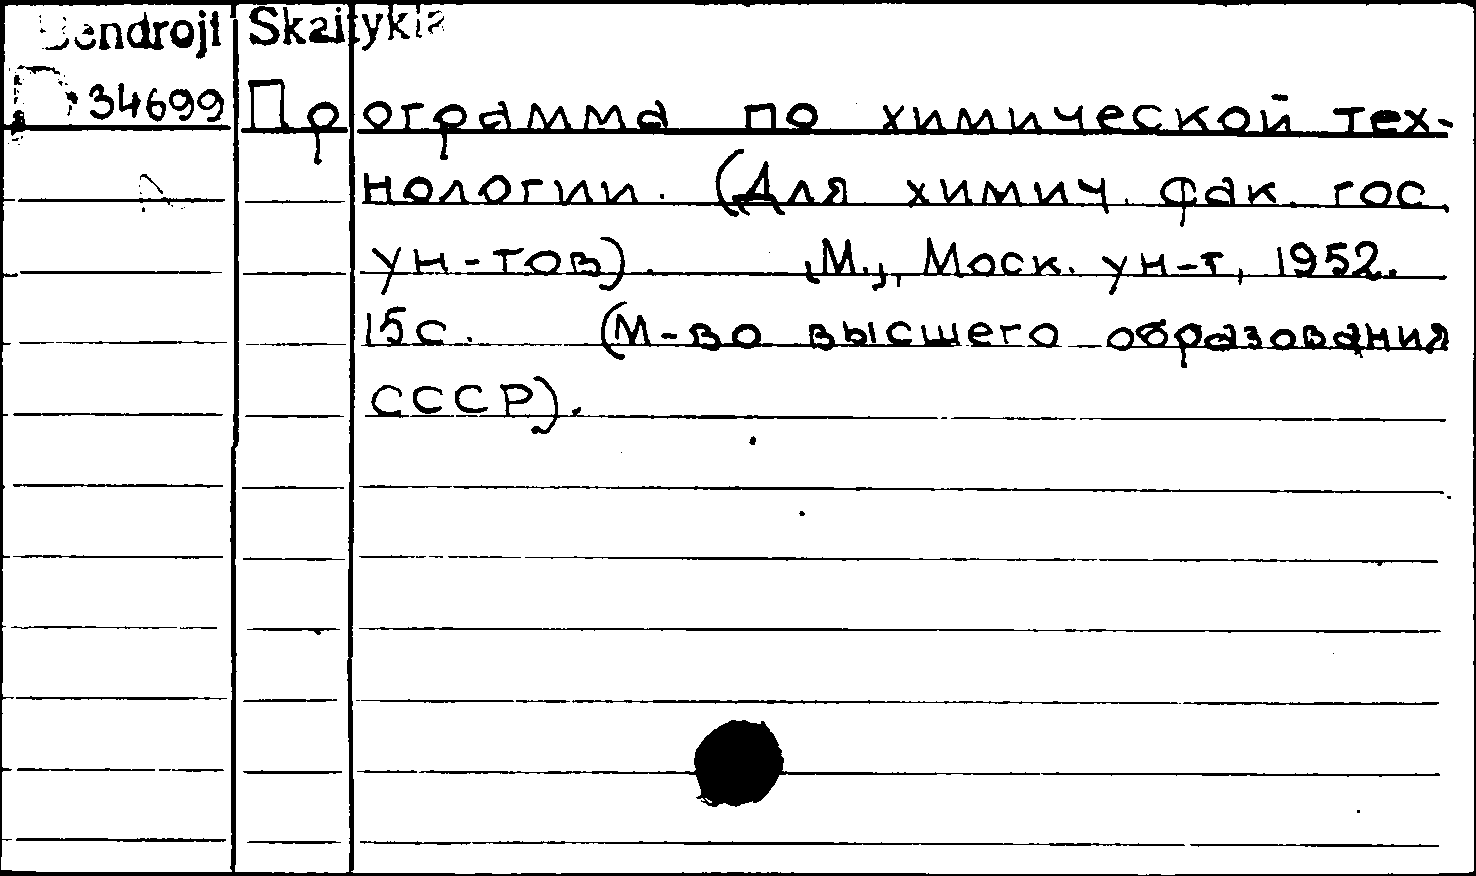 Bendroji Skaitykla
34699 Программа по химической тех-
нологии. (Для химич. фак. гос.
ун-тов). [М.], Моск. ун-т, 1952.
15с. (М-во высшего образования
СССР).